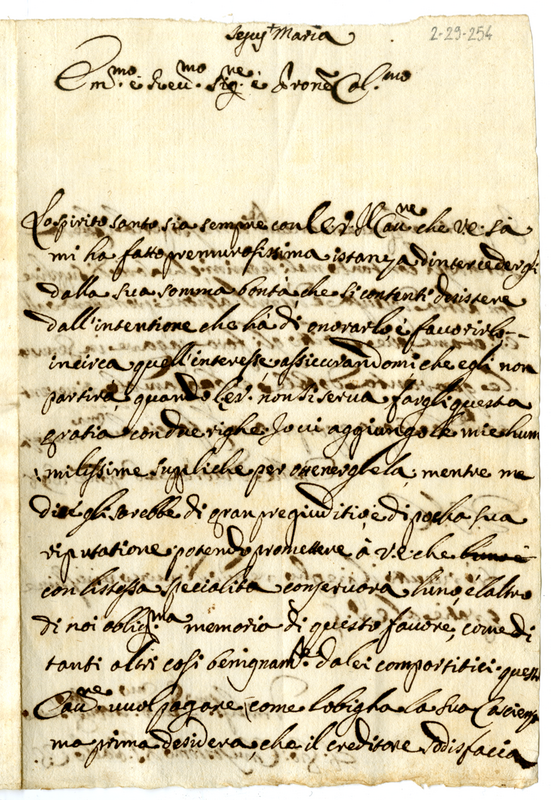 Jesus Maria
2-29-254
Em.mo è Reu.mo Sig.re è Prone Col.mo
Lo spirito santo sia sempre con l'e.v. Il Cau.re che v.e. sà
mi ha fatto premurosissima istanza d'intercedergli
dalla sua somma bontà che si contenti desistere
dall'intentione che hà di onorarlo è favorirlo
incirca quell'interesse assicurandomi che egli non
partirà, quando l'e.v. non si serva fargli questa
gratia con due righe. Io vi aggiungo le mie hum
milissime suppliche per ottenergliela, mentre me
dice gli sarebbe di gran pregiuditio e di pocha sua
riputatione potendo promettere à v.e. che
con listessa specialità conservarà l'uno, e laltro
di noi oblig.ma memoria di questo favore, come di
tanti altri così benignam.te da lei compartitici. quest
Cau.re vuol pagare, come lobligha la sua Cascienza
ma prima desidera che il creditore sodisfaccia